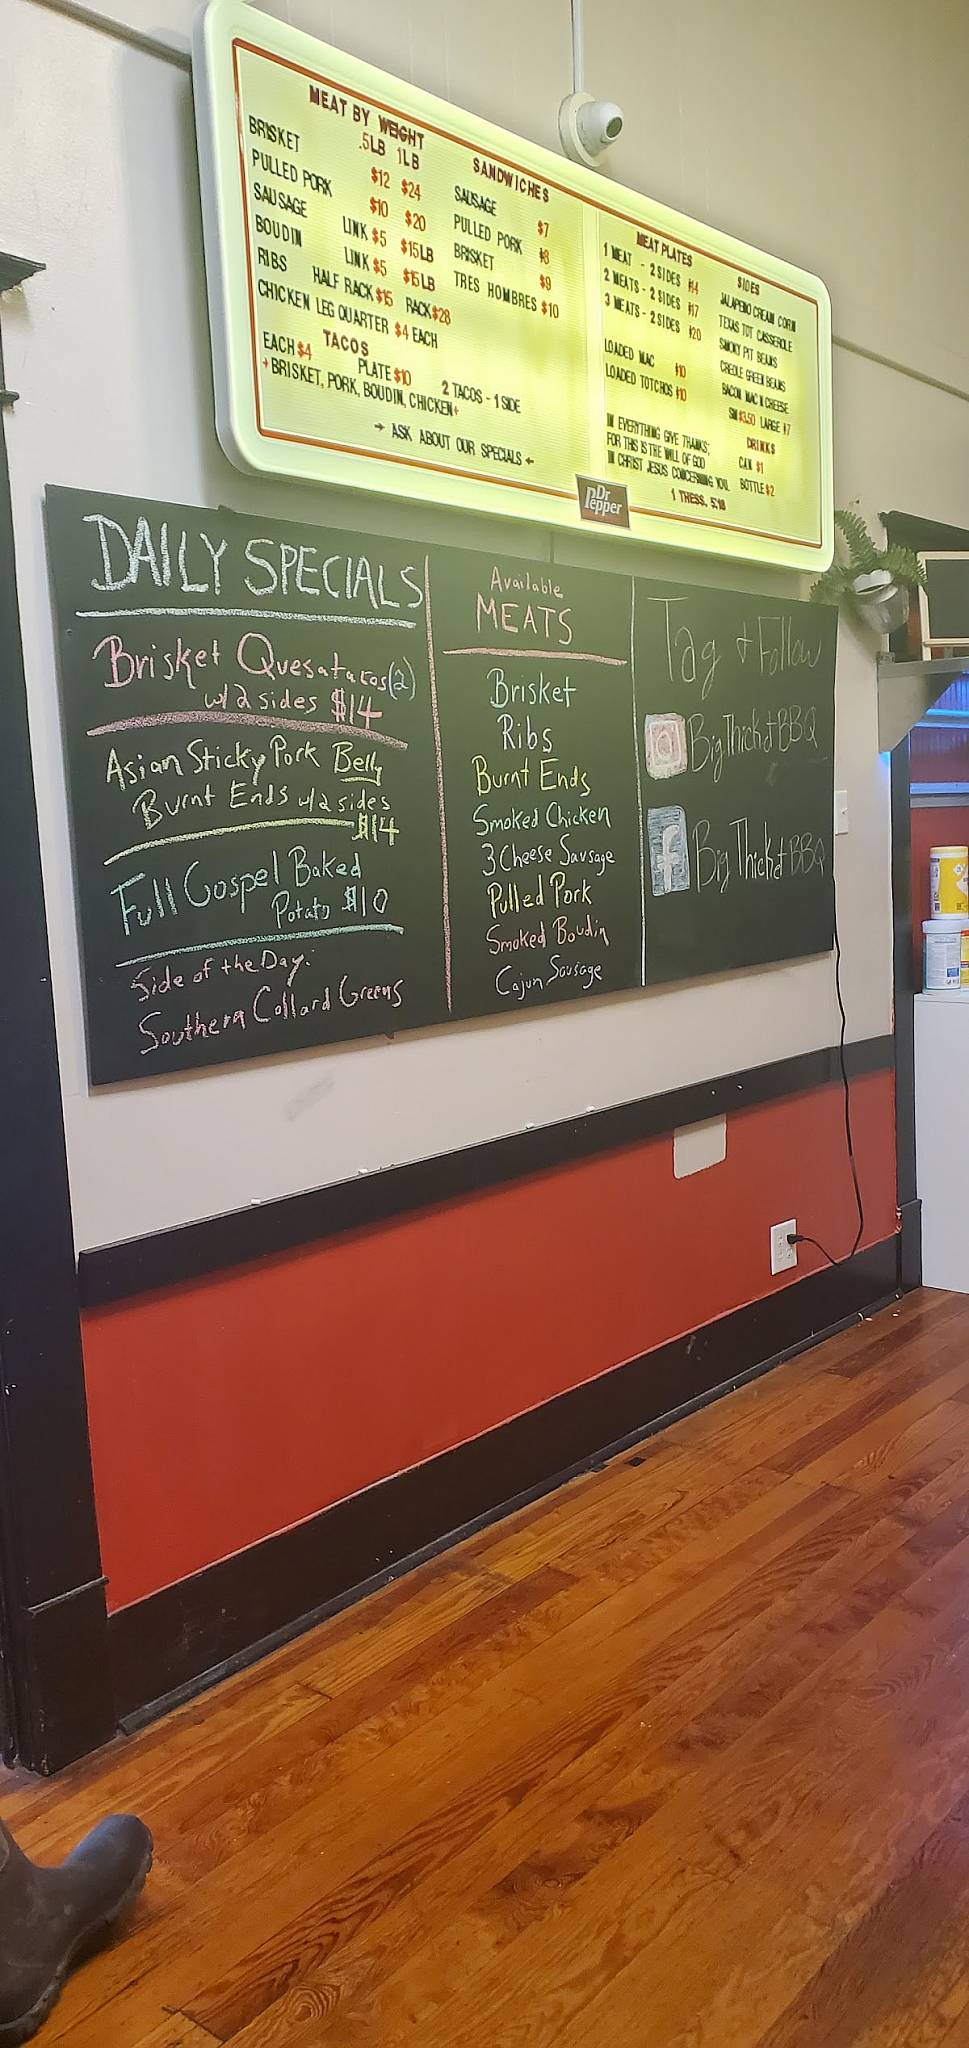 MEAT BY WEIGHT
.5LB 1LB
BRISKET $12 $24
PULLED PORK $10 $20
SAUSAGE LINK $5 $15LB
BOUDIN LINK $5 $15LB
RIBS HALF RACK $15 RACK $28
CHICKEN LEG QUARTER $4 EACH
TACOS
EACH $4 PLATE $10 2 TACOS - 1 SIDE
+BRISKET, PORK, BOUDIN, CHICKEN+
→ ASK ABOUT OUR SPECIALS ←
SANDWICHES
SAUSAGE $7
PULLED PORK $8
BRISKET $9
TRES HOMBRES $10
MEAT PLATES
1 MEAT - 2 SIDES $14
2 MEATS - 2 SIDES $17
3 MEATS - 2 SIDES $20
LOADED MAC $10
LOADED TOTCHOS $10
IN EVERYTHING GIVE THANKS;
FOR THIS IS THE WILL OF GOD
IN CHRIST JESUS CONCERNING YOU.
1 THESS. 5:18
SIDES
JALAPENO CREAM CORN
TEXAS TOT CASSEROLE
SMOKY PIT BEANS
CREOLE GREEN BEANS
BACON MAC N CHEESE
SM $3.50 LARGE $7
DRINKS
CAN $1
BOTTLE $2
Dr
Pepper
DAILY SPECIALS
Brisket Quesatacos (2)
w/2 sides $14
Asian Sticky Pork Belly
Burnt Ends w/2 sides
$14
Full Gospel Baked
Potato $10
Side of the Day:
Southern Collard Greens
Available
MEATS
Brisket
Ribs
Burnt Ends
Smoked Chicken
3 Cheese Sausage
Pulled Pork
Smoked Boudin
Cajun Sausage
Tag & Follow
BigThicketBBQ
f Big Thicket BBQ